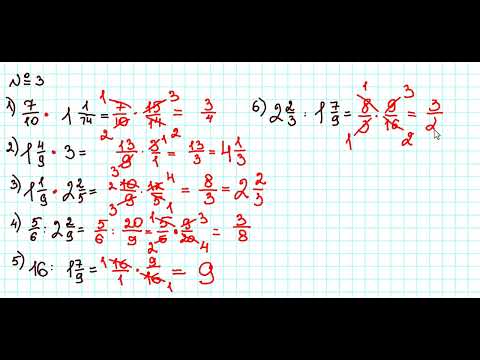 № 3
1) 7/10 · 1 1/14 = 7/10 · 15/14 = 3/4
2) 1 4/9 · 3 = 13/9 · 3/1 = 13/3 = 4 1/3
3) 1 1/9 · 2 2/5 = 10/9 · 12/5 = 8/3 = 2 2/3
4) 5/6 : 2 2/9 = 5/6 : 20/9 = 5/6 · 9/20 = 3/8
5) 16 : 1 7/9 = 16/1 · 9/16 = 9
6) 2 2/3 : 1 7/9 = 8/3 · 9/16 = 3/2